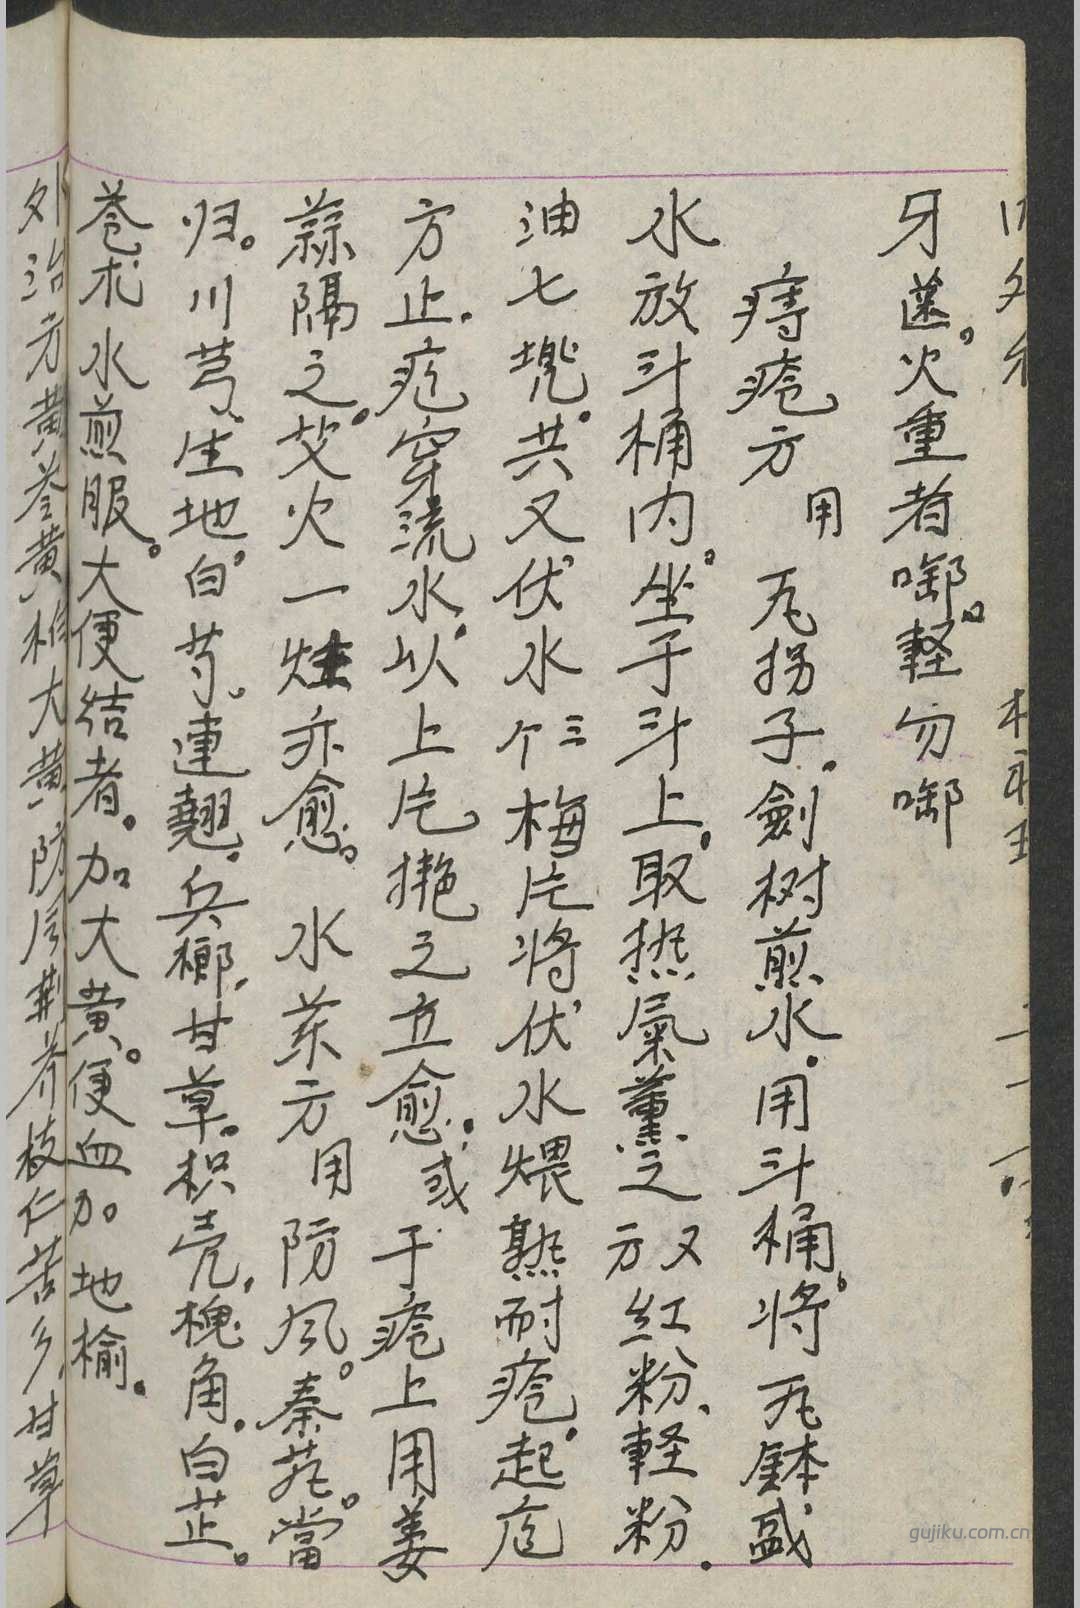 牙齒。火重者啣。軽勿啣
痔疮方 用 瓦拐子。劍树煎水。用斗桶。将瓦鉢盛
水放斗桶内。坐于斗上。取热氣薰之 又方 红粉、軽粉.
油七 共又伏水三个 梅片将伏水煨熟耐疮。起疙
方止.疙穿流水。以上片 之立愈. 或于疮上用姜
蒜隔之。艾火一炷亦愈。 水药方 用防风。秦艽。當
归。川芎。生地。白芍。連翘.兵榔.甘草。枳壳.槐角.白芷。
苍术水煎服。大便结者.加大黄。便血加地榆.
外治方黄 黄 大黄防风荆芥枝仁苦 甘草
gujiku.com.cn